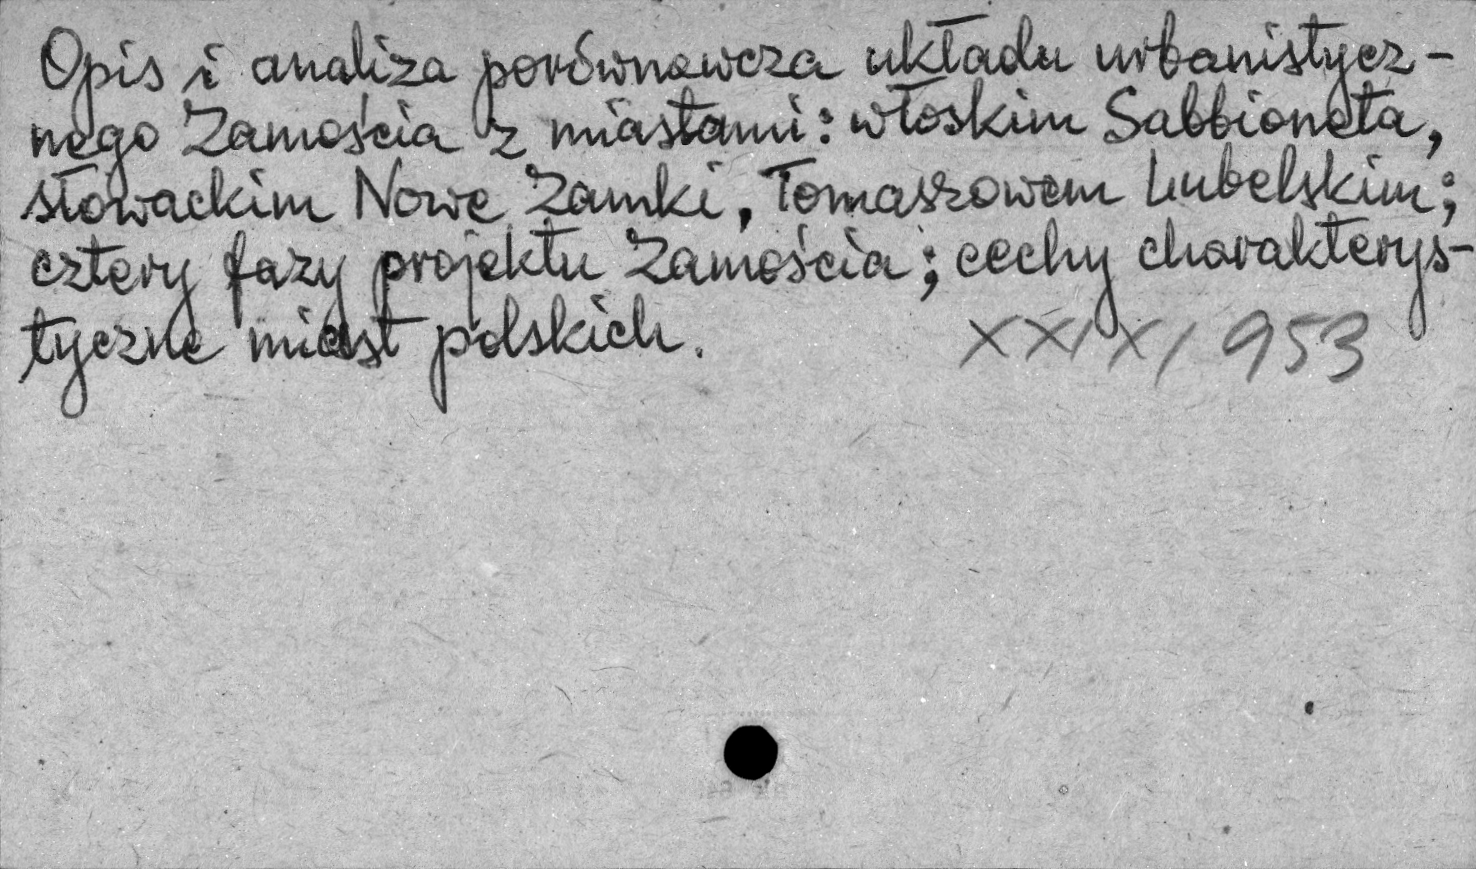 Opis i analiza porównawcza układu urbanistycz-
nego Zamościa z miastami: włoskim Sabbioneta,
słowackim Nowe Zamki, Tomaszowem Lubelskim;
cztery fazy projektu Zamościa; cechy charakterys-
tyczne miast polskich. XXIX/953